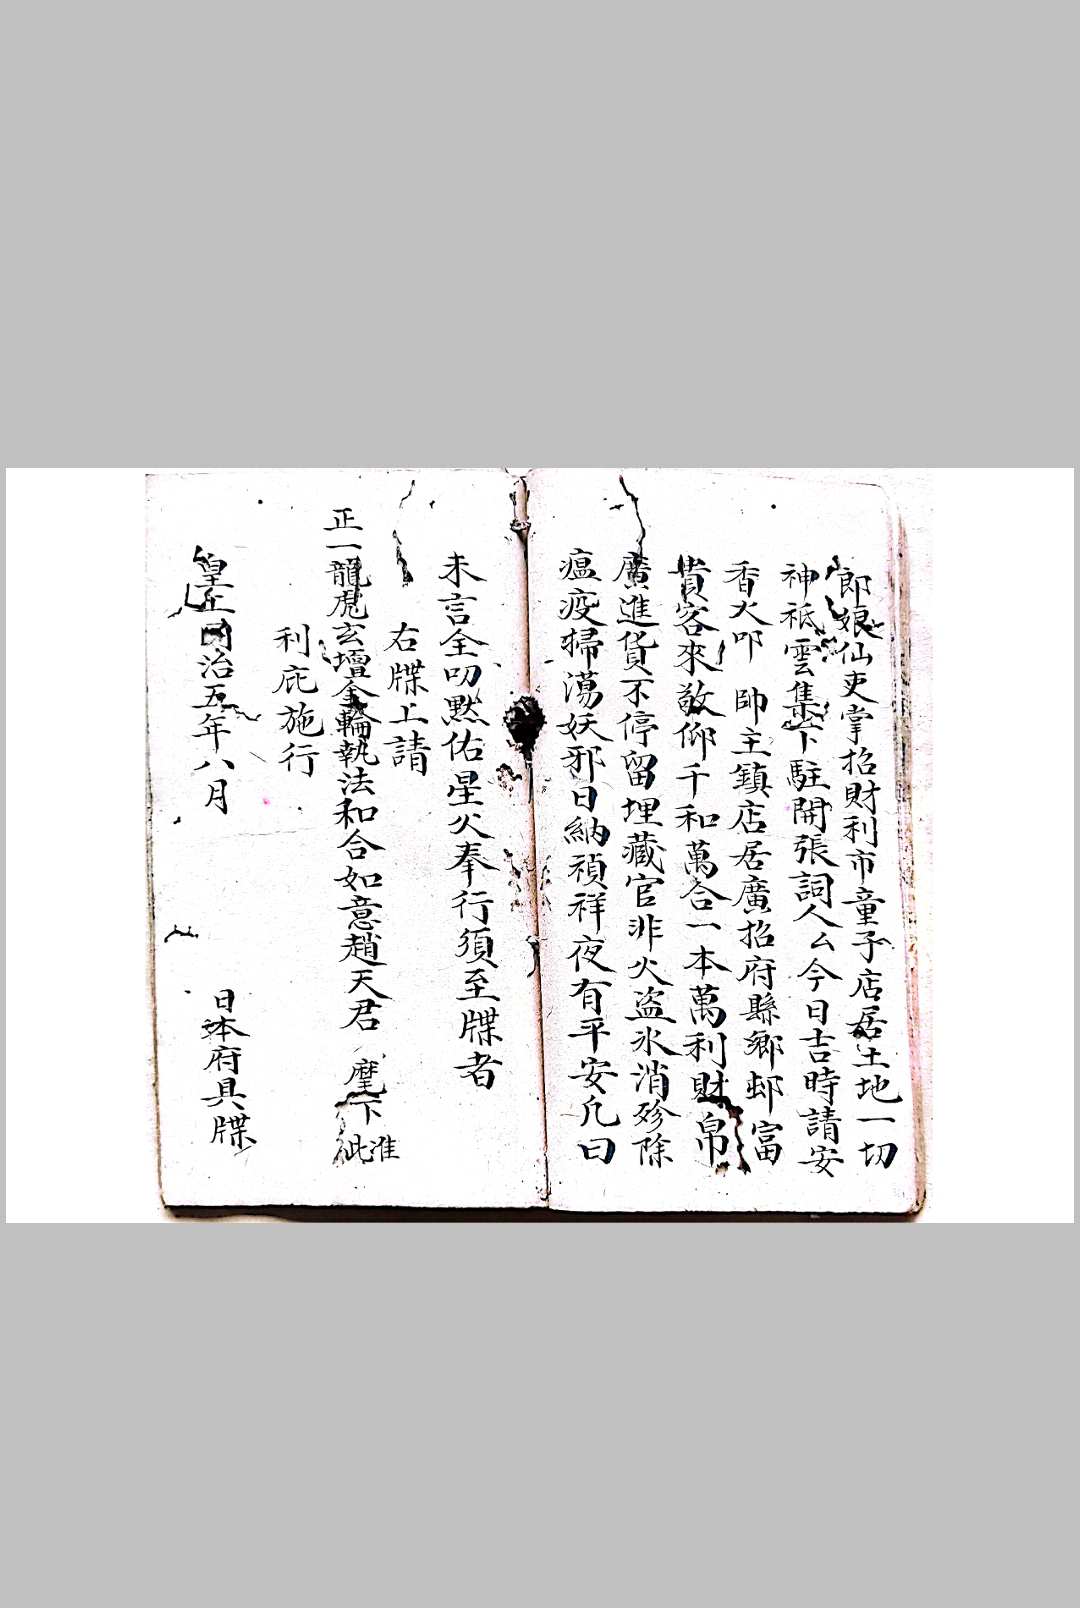 郎娘仙吏掌招財利市童子店居土地一切
神祗雲集下駐開張詞人厶今日吉時請安
香火叩 帥主鎮店居廣招府縣鄉邨富
貴客來敬仰千和萬合一本萬利財帛
廣進貨不停留埋藏官非火盜氷消殄除
瘟疫掃蕩妖邪日納禎祥夜有平安凡曰
未言全叨默佑星火奉行須至牒者
右牒上請
正一龍虎玄壇金輪執法和合如意趙天君 麾下准此
利庇施行
皇上同治五年八月 日本府具牒